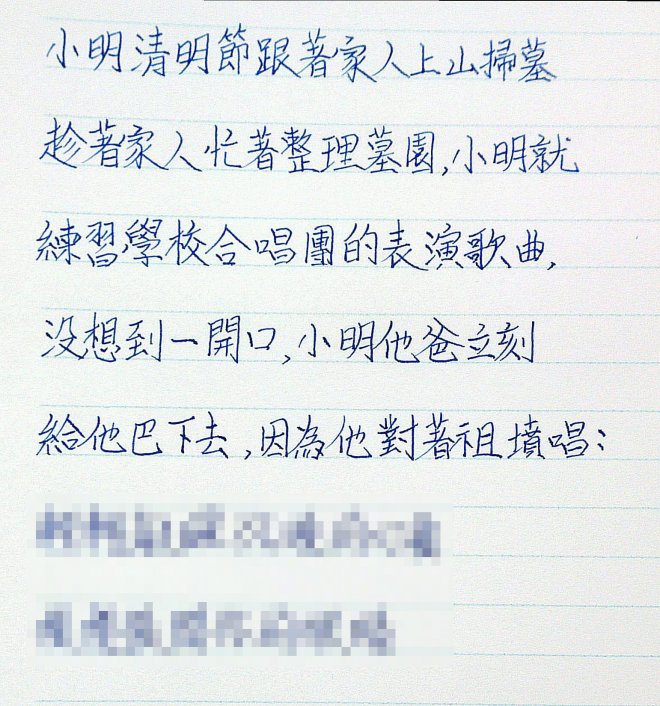 小明清明節跟著家人上山掃墓
趁著家人忙著整理墓園,小明就
練習學校合唱團的表演歌曲,
没想到一開口,小明他爸立刻
給他巴下去,因為他對著祖墳唱: